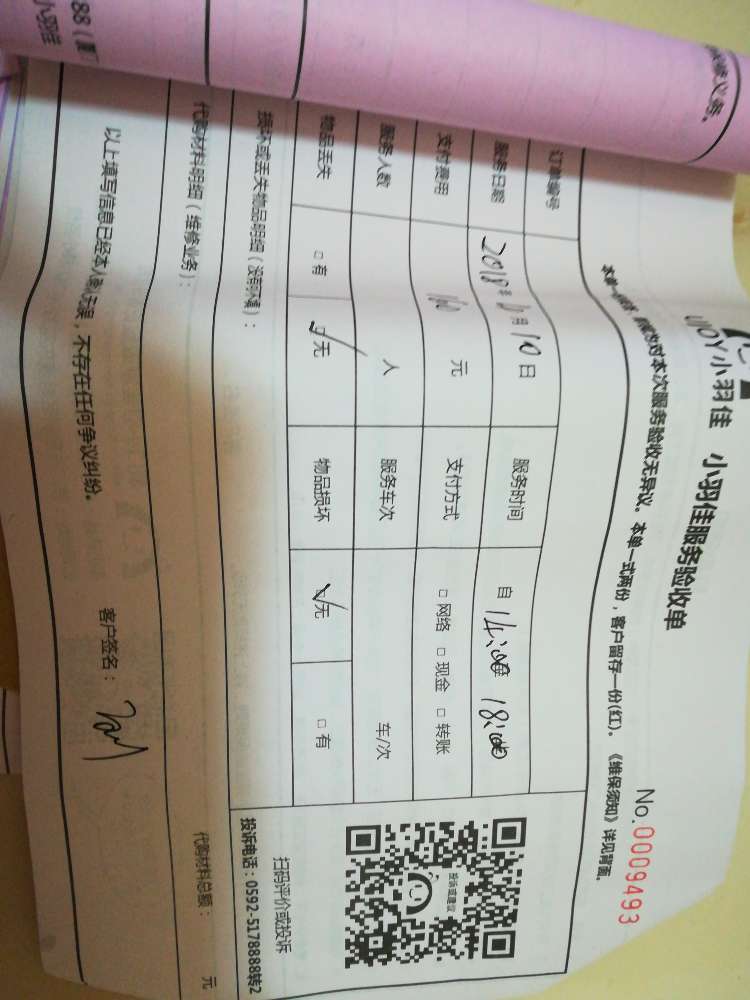 修义务。
88（厦门
小羽佳
UJOY小羽佳 小羽佳服务验收单
No.0009493
对本次服务验收无异议。本单一式两份，客户留存一份(红)。《维保须知》详见背面。
订单编号
服务日期 2018年 月10日 服务时间 自14:00至18:00
支付费用 160元 支付方式 □网络 □现金 □转账
服务人数 人 服务车次 车/次
物品丢失 □有 □无 物品损坏 □无 □有
损坏或丢失物品明细（没有不填）：
代购材料明细（维修业务）：
代购材料总额： 元
投诉或建议
扫码评价或投诉
投诉电话：0592-5178888转2
以上填写信息已经本人确认无误，不存在任何争议纠纷。 客户签名：